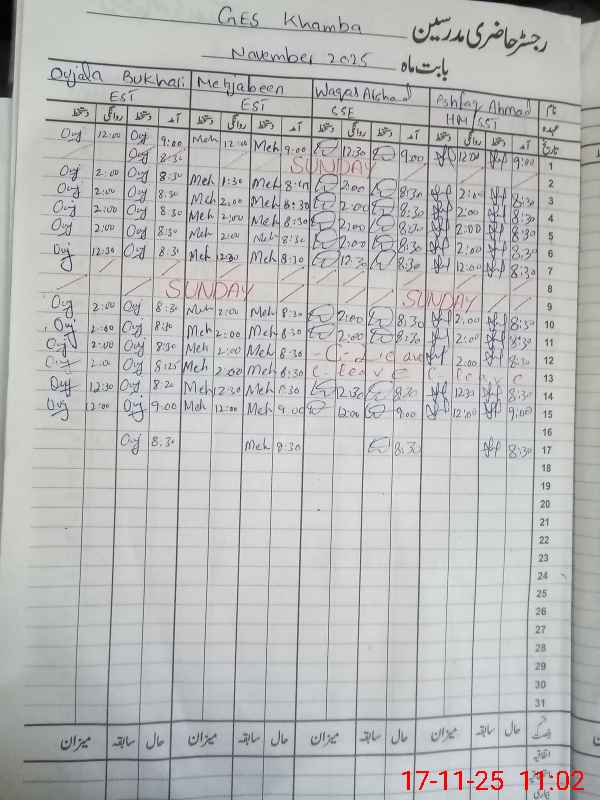 GES Khamba رجسٹر حاضری مدرسین
November 2025 بابت ماہ
Oujala Bukhari Mehjabeen Waqas Arshad Ashfaq Ahmad نام
EST EST CSF HM/SST عہدہ
دستخط روانگی دستخط آمد دستخط روانگی دستخط آمد دستخط روانگی دستخط آمد دستخط روانگی دستخط آمد تاریخ
Ouj 12:00 Ouj 9:00 Meh 12:00 Meh 9:00 12:30 9:00 12:00 9:00 1
Ouj 8:30 SUNDAY 2
Ouj 2:00 Ouj 8:30 Meh 1:30 Meh 2:00 8:30 2:00 8:30 3
Ouj 2:00 Ouj 8:30 Meh 2:00 Meh 8:30 2:00 8:30 2:00 8:30 4
Ouj 2:00 Ouj 8:30 Meh 2:00 Meh 8:30 2:00 8:30 2:00 8:30 5
Ouj 2:00 Ouj 8:30 Meh 2:00 Meh 8:30 2:00 8:30 2:00 8:30 6
Ouj 12:30 Ouj 8:30 Meh 12:30 Meh 8:30 12:30 8:30 12:00 8:30 7
8
SUNDAY SUNDAY 9
Ouj 2:00 Ouj 8:30 Meh 2:00 Meh 8:30 2:00 8:30 2:00 8:30 10
Ouj 2:00 Ouj 8:30 Meh 2:00 Meh 8:30 2:00 8:30 2:00 8:30 11
Ouj 2:00 Ouj 8:30 Meh 2:00 Meh 8:30 C. Leave 2:00 8:30 12
Ouj 2:00 Ouj 8:25 Meh 2:00 Meh 8:30 C. Leave C. Leave 13
Ouj 12:30 Ouj 8:20 Meh 12:30 Meh 8:30 12:30 8:30 12:30 8:30 14
Ouj 12:00 Ouj 9:00 Meh 12:00 Meh 9:00 12:00 9:00 12:00 9:00 15
16
Ouj 8:30 Meh 8:30 8:30 8:30 17
18
19
20
21
22
23
24
25
26
27
28
29
30
31
میزان سابقہ حال میزان سابقہ حال میزان سابقہ حال میزان سابقہ حال
اتفاقیہ
17-11-25 11:02